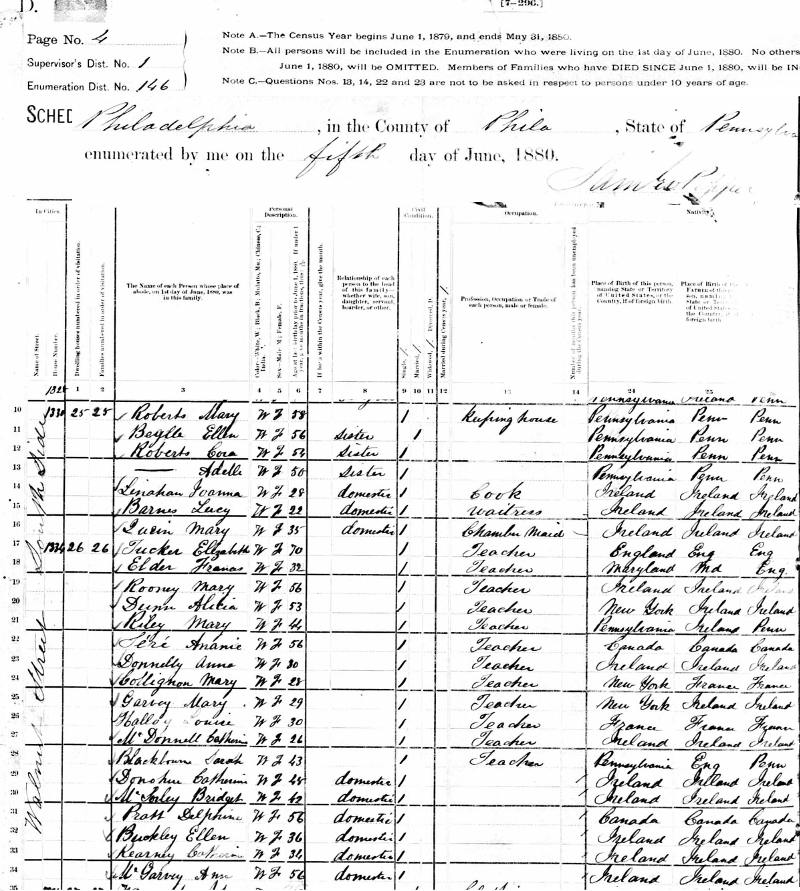 D.
[7-296.]
Page No. 4
Supervisor's Dist. No. 1
Enumeration Dist. No. 146
Note A.—The Census Year begins June 1, 1879, and ends May 31, 1880.
Note B.—All persons will be included in the Enumeration who were living on the 1st day of June, 1880. No others
June 1, 1880, will be OMITTED. Members of Families who have DIED SINCE June 1, 1880, will be IN
Note C.—Questions Nos. 13, 14, 22 and 23 are not to be asked in respect to persons under 10 years of age.
SCHED Philadelphia , in the County of Phila , State of Pennsylva
enumerated by me on the fifth day of June, 1880.
In Cities.
Personal Description.
Civil Condition.
Occupation.
Nativity
Name of Street.
House Number.
Dwelling houses numbered in order of visitation.
Families numbered in order of visitation.
The Name of each Person whose place of abode, on 1st day of June, 1880, was in this family.
Relationship of each person to the head of this family—whether wife, son, daughter, servant, boarder, or other.
Profession, Occupation or Trade of each person, male or female.
Place of Birth of this person, naming State or Territory of United States, or the Country, if of foreign birth.
1 2 3 4 5 6 7 8 9 10 11 12 13 14 24 25
1328
Pennsylvania Ireland Penn
Walnut Street South Side
10 1330 25 25 Roberts Mary W F 58 1 Keeping house Pennsylvania Penn Penn
11 Ellen W F 56 Sister 1 Pennsylvania Penn Penn
12 Roberts Cora W F 54 Sister 1 Pennsylvania Penn Penn
13 — Adelle W F 50 Sister 1 Pennsylvania Penn Penn
14 Linahan Joanna W F 28 domestic 1 Cook Ireland Ireland Ireland
15 Barnes Lucy W F 22 domestic 1 Waitress Ireland Ireland Ireland
16 Mary W F 35 domestic 1 Chamber Maid Ireland Ireland Ireland
17 1334 26 26 Tucker Elizabeth W F 70 1 Teacher England Eng Eng
18 Elder Frances W F 32 1 Teacher Maryland Md Eng.
19 Rooney Mary W F 56 1 Teacher Ireland Ireland Ireland
20 Dunn Alicia W F 53 1 Teacher New York Ireland Ireland
21 Riley Mary W F 44 1 Teacher Pennsylvania Ireland Penn
22 Seré Ananie W F 56 1 Teacher Canada Canada Canada
23 Donnelly Anna W F 30 1 Teacher Ireland Ireland Ireland
24 Collignon Mary W F 28 1 Teacher New York France France
25 Garvey Mary W F 29 1 Teacher New York Ireland Ireland
26 Louise W F 30 1 Teacher France France France
27 McDonnell Catherine W F 26 1 Teacher Ireland Ireland Ireland
Blackbourn Sarah W F 43 1 Teacher Pennsylvania Eng Penn
29 Donohue Catherine W F 45 domestic 1 Ireland Ireland Ireland
30 McSorley Bridget W F 42 domestic 1 Ireland Ireland Ireland
31 Pratt Delphine W F 56 domestic 1 Canada Canada Canada
32 Buckley Ellen W F 36 domestic 1 Ireland Ireland Ireland
33 Kearney Catherine W F 34 domestic 1 Ireland Ireland Ireland
34 McGarvey Ann W F 56 domestic 1 Ireland Ireland Ireland
35